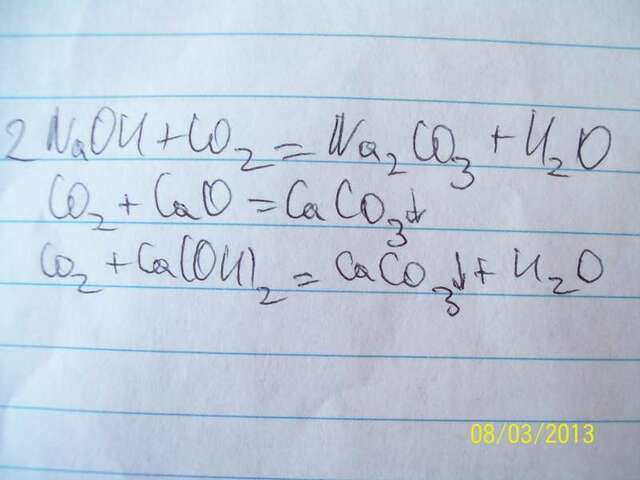 2NaOH+CO₂=Na₂CO₃+H₂O
CO₂+CaO=CaCO₃↓
CO₂+Ca(OH)₂=CaCO₃↓+H₂O
08/03/2013